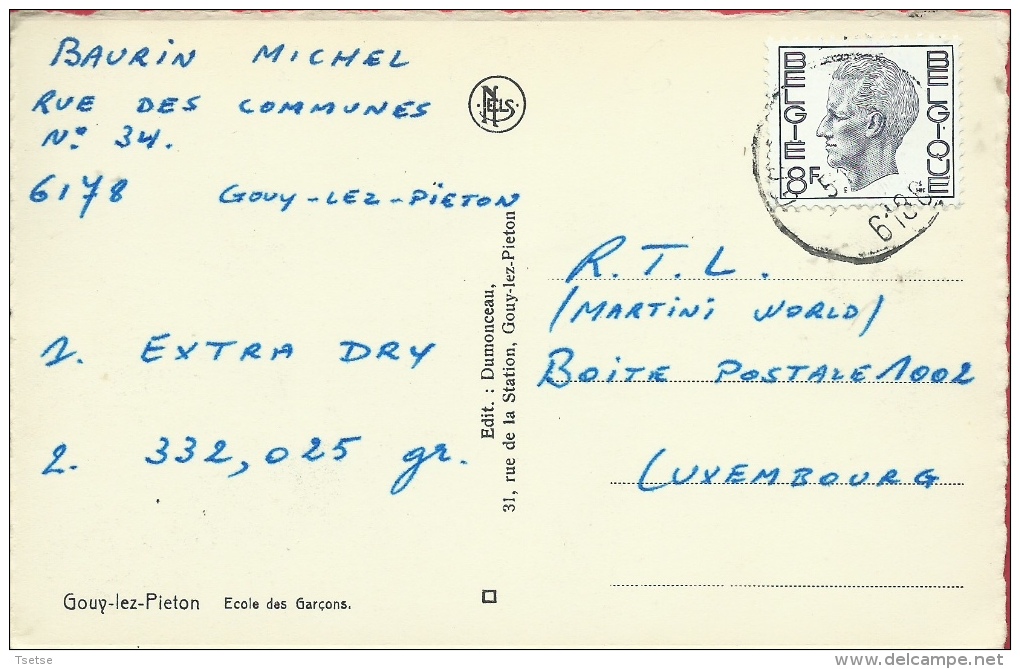 BAURIN MICHEL
RUE DES COMMUNES
N° 34.
6178 GOUY-LEZ-PIETON
1. EXTRA DRY
2. 332,025 gr.
NELS
Edit. : Dumonceau,
31, rue de la Station, Gouy-lez-Pieton
BELGIE
8F
BELGIQUE
6180
R.T.L.
(MARTINI WORLD)
BOITE POSTALE 1002
LUXEMBOURG
Gouy-lez-Pieton Ecole des Garçons.
Tsetse
delcampe.net